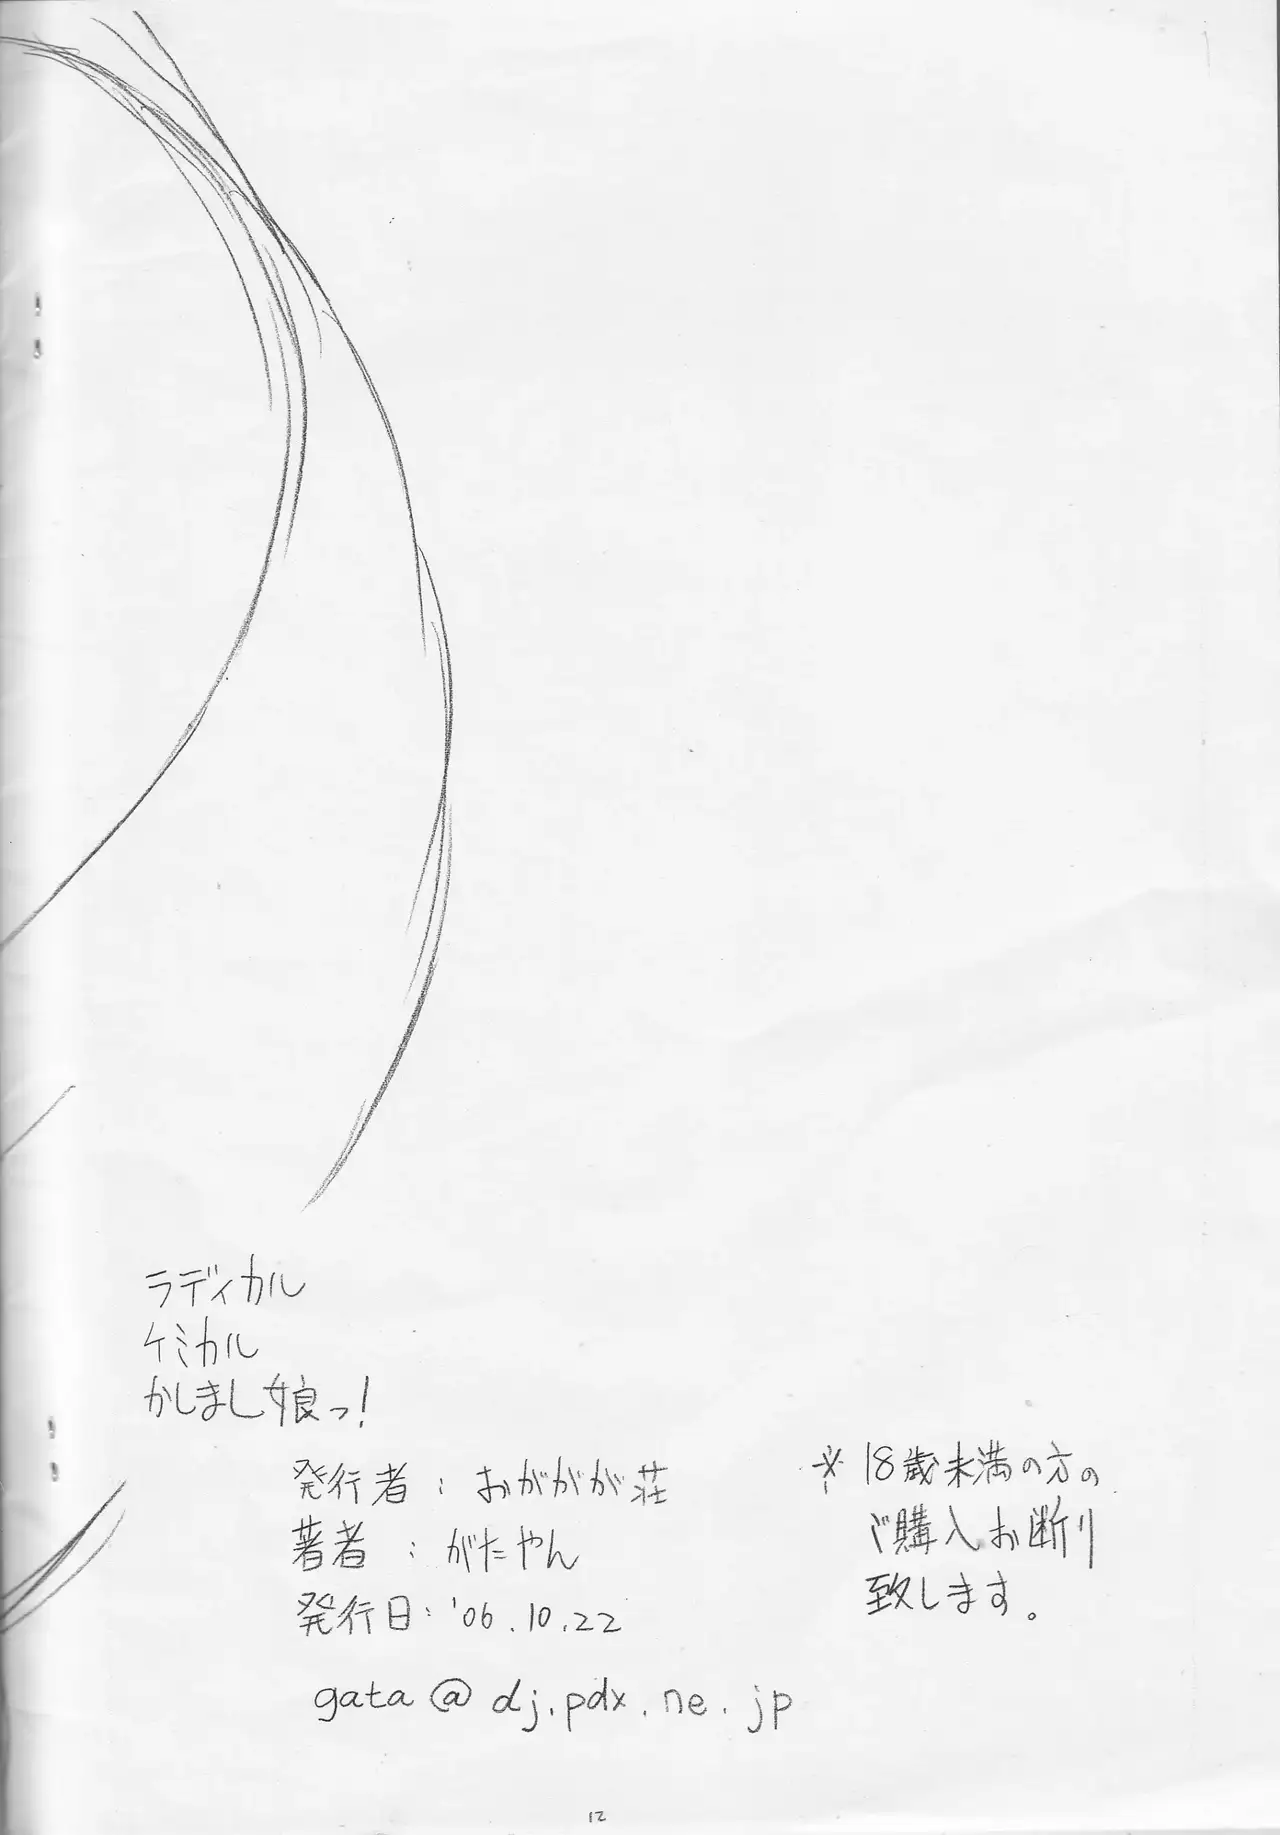 ラディカル
ケミカル
かしまし娘っ!
発行者:おががが荘
著者:がたやん
発行日:'06.10.22
gata@dj.pdx.ne.jp
※18歳未満の方の
ご購入お断り
致します。
12